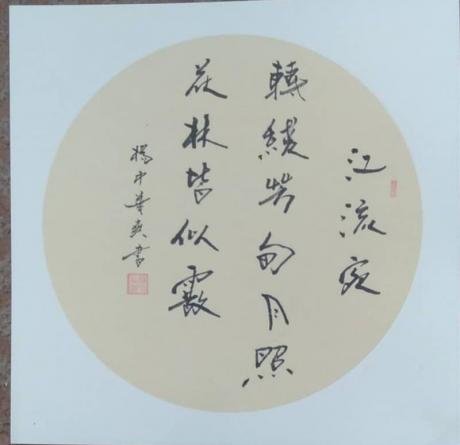 江流宛
轉繞芳甸月照
花林皆似霰
中書